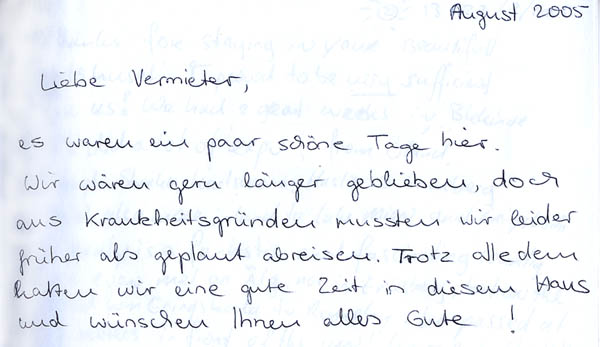 August 2005
Liebe Vermieter,
es waren ein paar schöne Tage hier.
Wir wären gern länger geblieben, doch
aus Krankheitsgründen mussten wir leider
früher als geplant abreisen. Trotz alledem
hatten wir eine gute Zeit in diesem Haus
und wünschen Ihnen alles Gute !